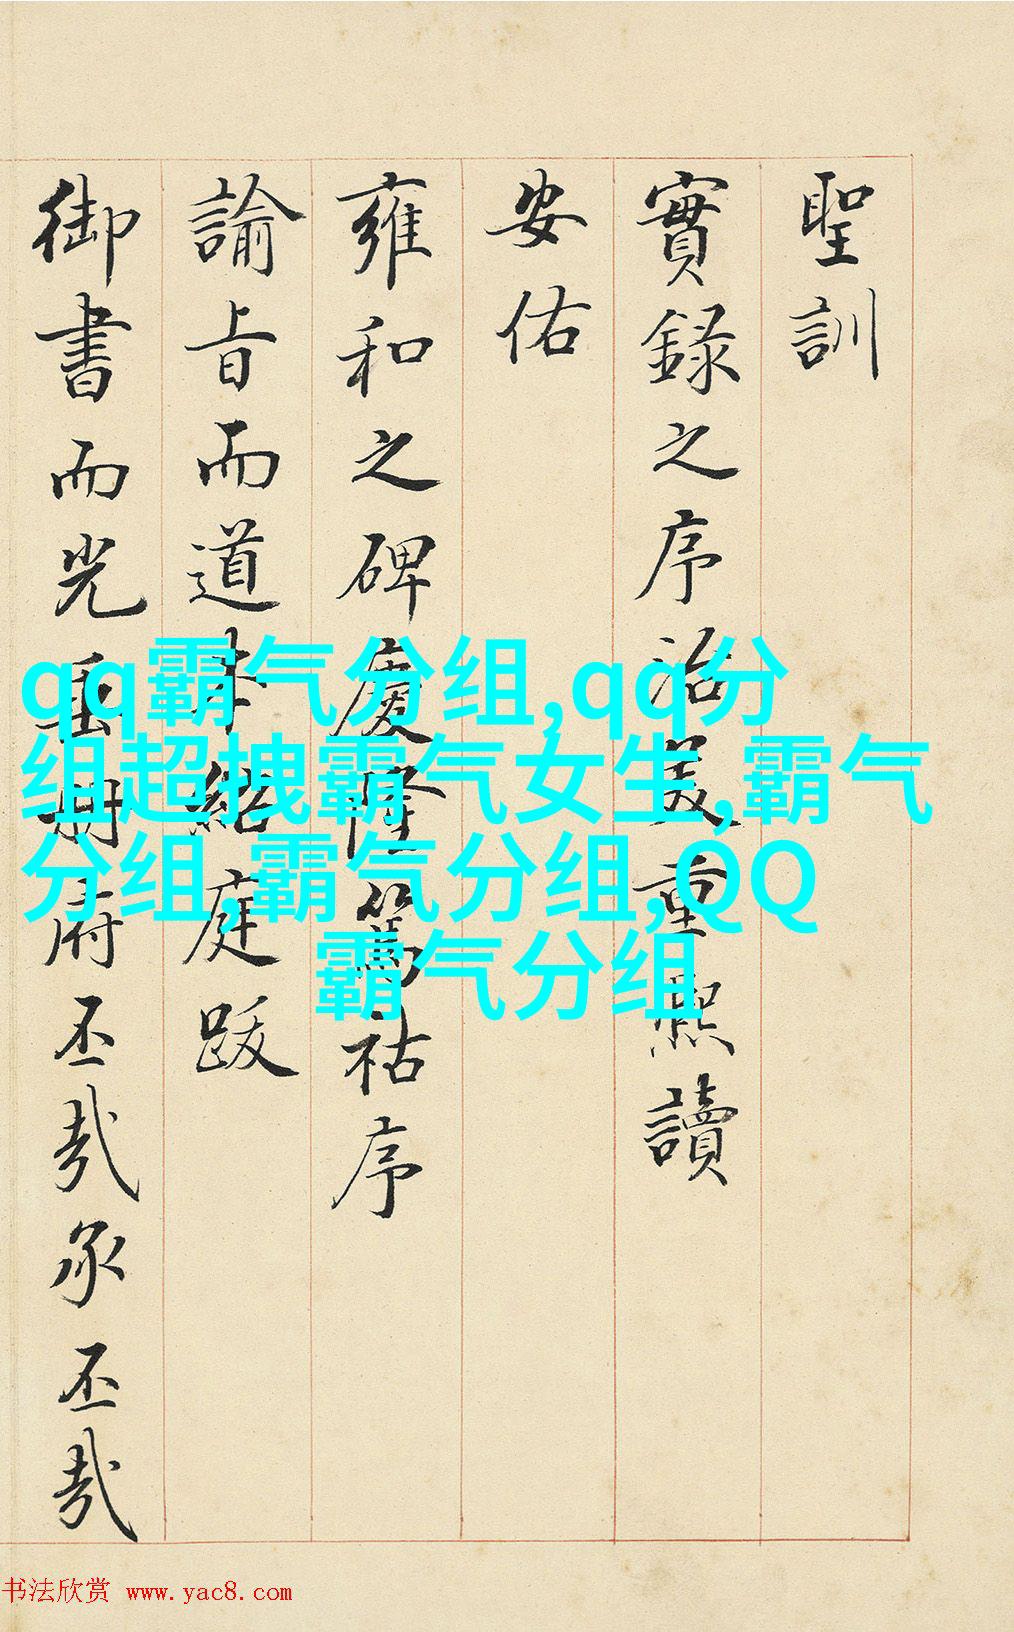 聖訓
實錄之序治美重熙讀
安佑
雍和之碑慶隆篤祜序
諭旨而道本繼庭跋
御書而光垂冊府丕哉承丕哉
qq霸气分组,qq分
组超拽霸气女生,霸气
分组,霸气分组,QQ
霸气分组
书法欣赏 www.yac8.com